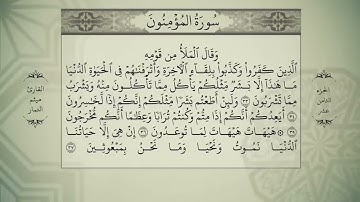 سُورَةُ الْمُؤْمِنُونَ
وَقَالَ الْمَلَأُ مِن قَوْمِهِ
الَّذِينَ كَفَرُوا وَكَذَّبُوا بِلِقَاءِ الْآخِرَةِ وَأَتْرَفْنَاهُمْ فِي الْحَيَوٰةِ الدُّنْيَا
مَا هَٰذَا إِلَّا بَشَرٌ مِّثْلُكُمْ يَأْكُلُ مِمَّا تَأْكُلُونَ مِنْهُ وَيَشْرَبُ
مِمَّا تَشْرَبُونَ ٣٣ وَلَئِنْ أَطَعْتُم بَشَرًا مِّثْلَكُمْ إِنَّكُمْ إِذًا لَّخَاسِرُونَ
٣٤ أَيَعِدُكُمْ أَنَّكُمْ إِذَا مِتُّمْ وَكُنتُمْ تُرَابًا وَعِظَامًا أَنَّكُم مُّخْرَجُونَ
٣٥ هَيْهَاتَ هَيْهَاتَ لِمَا تُوعَدُونَ ٣٦ إِنْ هِيَ إِلَّا حَيَاتُنَا
الدُّنْيَا نَمُوتُ وَنَحْيَا وَمَا نَحْنُ بِمَبْعُوثِينَ ٣٧
الجزء
الثامن
عشر
القارئ
ميثم
التمار